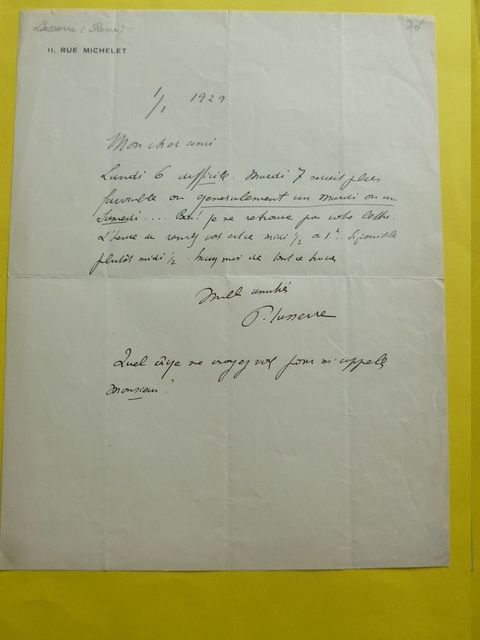 70
11. RUE MICHELET
1/1 1929
Mon cher ami
Lundi 6 difficile. Mardi 7 serait plus
favorable ou généralement un Mardi ou un
Samedi.... Bon! je ne retrouve pas votre lettre.
L'heure du rendez vous entre midi 1/2 et 1h. disponible
plutôt midi 1/2. de tout ce
Mille amitiés
P. Lasserre
Quel âge me croyez vous pour m'appeler
Monsieur?